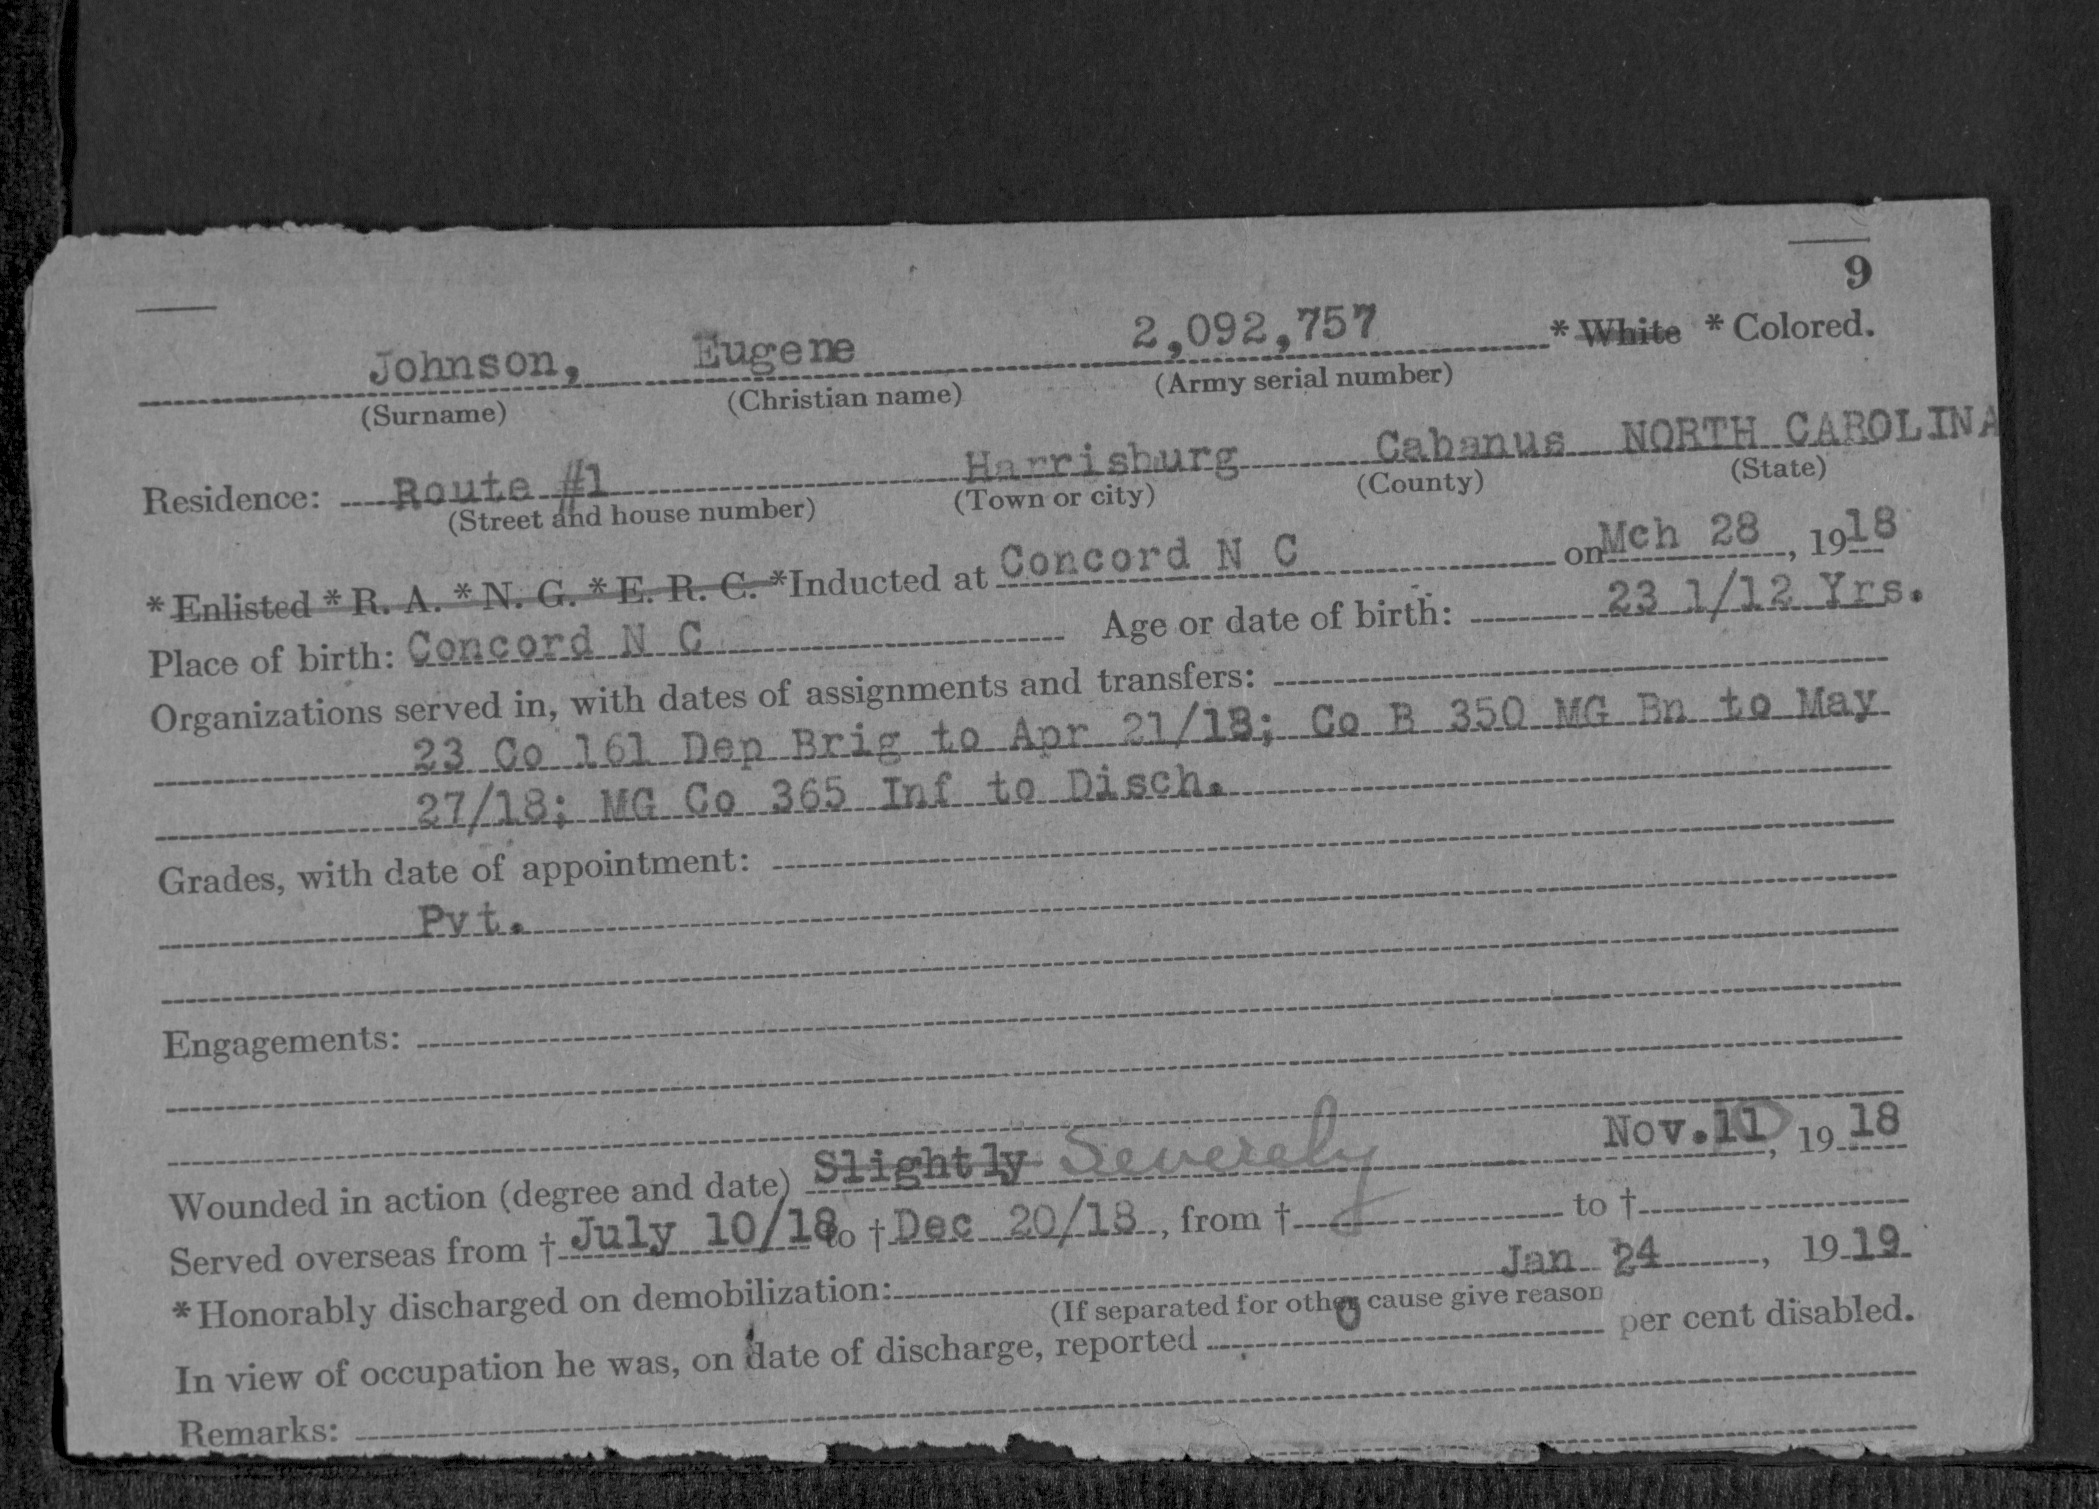 9
Johnson, Eugene 2,092,757 * White * Colored.
(Surname) (Christian name) (Army serial number)
Residence: Route #1 Harrisburg Cabanus NORTH CAROLINA
(Street and house number) (Town or city) (County) (State)
* Enlisted * R. A. * N. G. * E. R. C. *Inducted at Concord N C on Mch 28, 1918
Place of birth: Concord N C Age or date of birth: 23 1/12 Yrs.
Organizations served in, with dates of assignments and transfers:
23 Co 161 Dep Brig to Apr 21/18; Co B 350 MG Bn to May
27/18; MG Co 365 Inf to Disch.
Grades, with date of appointment:
Pvt.
Engagements:
Wounded in action (degree and date) Slightly Severely Nov. , 1918
Served overseas from † July 10/18 to † Dec 20/18, from † to †
*Honorably discharged on demobilization: Jan 24, 1919
(If separated for other cause give reason
In view of occupation he was, on date of discharge, reported 0 per cent disabled.
Remarks: